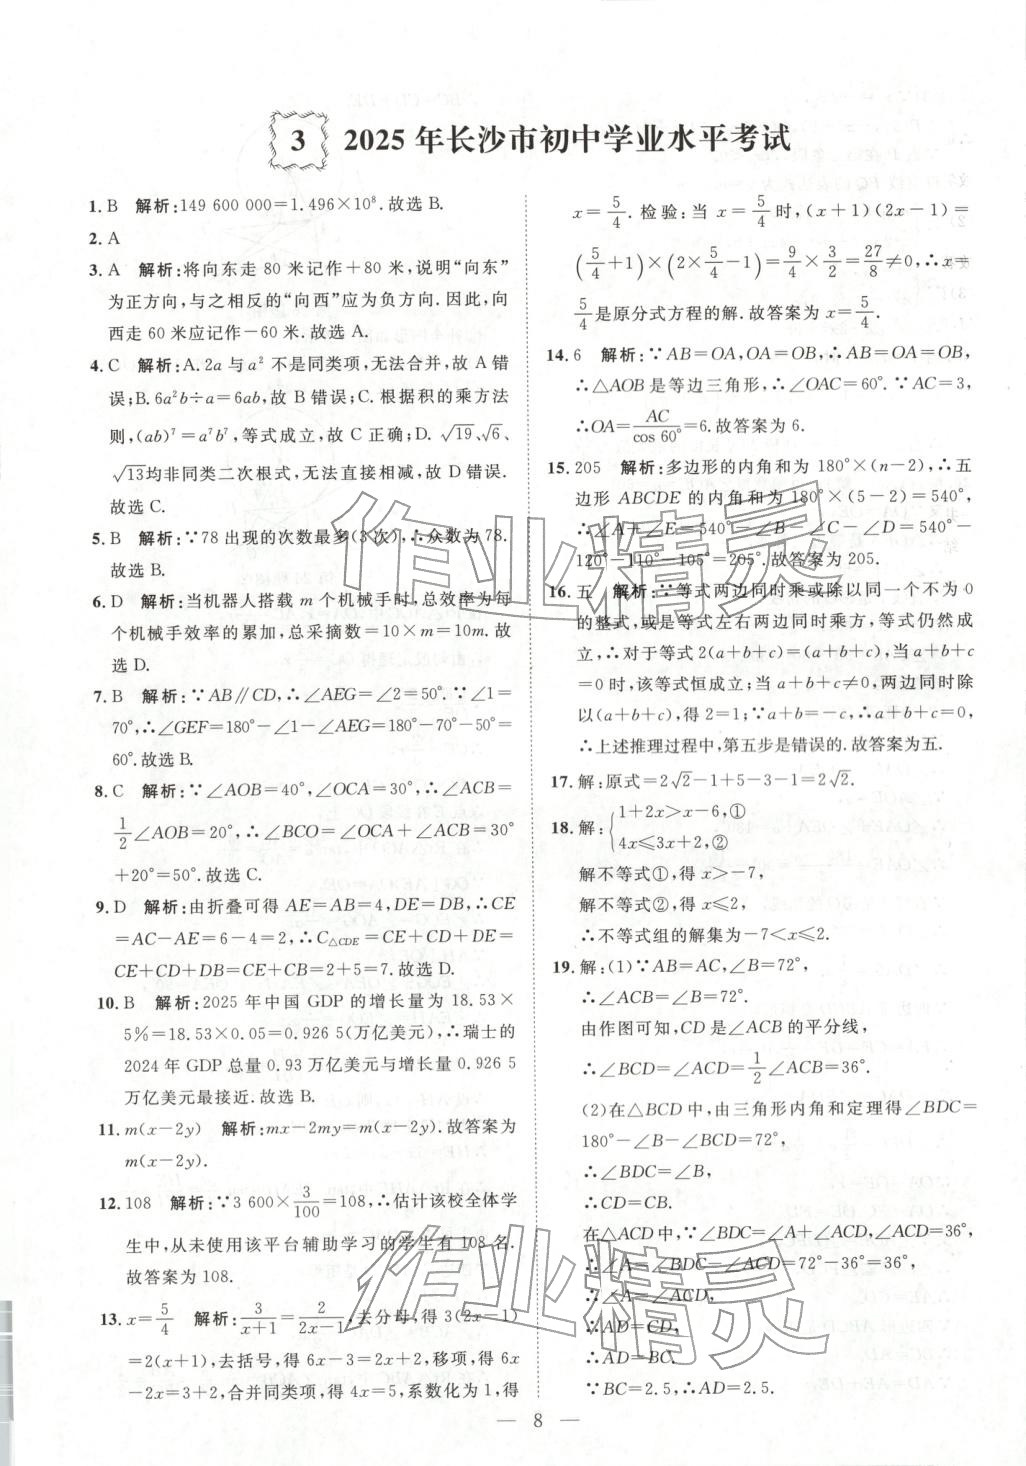 3 2025年长沙市初中学业水平考试
1. B 解析:149 600 000=1.496×10⁸.故选 B.
2. A
3. A 解析:将向东走 80 米记作+80 米,说明“向东”
为正方向,与之相反的“向西”应为负方向.因此,向
西走 60 米应记作-60 米.故选 A.
4. C 解析:A.2a 与 a² 不是同类项,无法合并,故 A 错
误;B.6a²b÷a=6ab,故 B 错误;C. 根据积的乘方法
则,(ab)⁷=a⁷b⁷,等式成立,故 C 正确;D. √19、√6、
√13均非同类二次根式,无法直接相减,故 D 错误.
故选 C.
5. B 解析:∵78 出现的次数最多(3 次),∴众数为 78.
故选 B.
6. D 解析:当机器人搭载 m 个机械手时,总效率为每
个机械手效率的累加,总采摘数=10×m=10m.故
选 D.
7. B 解析:∵AB∥CD,∴∠AEG=∠2=50°.∵∠1=
70°,∴∠GEF=180°-∠1-∠AEG=180°-70°-50°=
60°.故选 B.
8. C 解析:∵∠AOB=40°,∠OCA=30°,∴∠ACB=
1/2∠AOB=20°,∴∠BCO=∠OCA+∠ACB=30°
+20°=50°.故选 C.
9. D 解析:由折叠可得 AE=AB=4,DE=DB,∴CE
=AC-AE=6-4=2,∴C△CDE=CE+CD+DE=
CE+CD+DB=CE+CB=2+5=7.故选 D.
10. B 解析:2025 年中国 GDP 的增长量为 18.53×
5%=18.53×0.05=0.926 5(万亿美元),∴瑞士的
2024 年 GDP 总量 0.93 万亿美元与增长量 0.926 5
万亿美元最接近.故选 B.
11. m(x-2y) 解析:mx-2my=m(x-2y).故答案为
m(x-2y).
12. 108 解析:∵3 600×3/100=108,∴估计该校全体学
生中,从未使用该平台辅助学习的学生有 108 名.
故答案为 108.
13. x=5/4 解析:3/(x+1)=2/(2x-1),去分母,得 3(2x-1)
=2(x+1),去括号,得 6x-3=2x+2,移项,得 6x
-2x=3+2,合并同类项,得 4x=5,系数化为 1,得
x=5/4. 检验:当 x=5/4 时,(x+1)(2x-1)=
(5/4+1)×(2×5/4-1)=9/4×3/2=27/8≠0,∴x=
5/4是原分式方程的解.故答案为 x=5/4.
14. 6 解析:∵AB=OA,OA=OB,∴AB=OA=OB,
∴△AOB是等边三角形,∴∠OAC=60°.∵AC=3,
∴OA=AC/cos 60°=6.故答案为 6.
15. 205 解析:多边形的内角和为 180°×(n-2),∴五
边形 ABCDE 的内角和为 180°×(5-2)=540°,
∴∠A+∠E=540°-∠B-∠C-∠D=540°-
120°-110°-105°=205°.故答案为 205.
16. 五 解析:∵等式两边同时乘或除以同一个不为 0
的整式,或是等式左右两边同时乘方,等式仍然成
立,∴对于等式 2(a+b+c)=(a+b+c),当 a+b+c
=0 时,该等式恒成立;当 a+b+c≠0,两边同时除
以(a+b+c),得 2=1;∵a+b=-c,∴a+b+c=0,
∴上述推理过程中,第五步是错误的.故答案为五.
17. 解:原式=2√2-1+5-3-1=2√2.
18. 解:{1+2x>x-6,①
4x≤3x+2,②
解不等式①,得 x>-7,
解不等式②,得 x≤2,
∴不等式组的解集为-7<x≤2.
19. 解:(1)∵AB=AC,∠B=72°,
∴∠ACB=∠B=72°.
由作图可知,CD 是∠ACB 的平分线,
∴∠BCD=∠ACD=1/2∠ACB=36°.
(2)在△BCD 中,由三角形内角和定理得∠BDC=
180°-∠B-∠BCD=72°,
∴∠BDC=∠B,
∴CD=CB.
在△ACD 中,∵∠BDC=∠A+∠ACD,∠ACD=36°,
∴∠A=∠BDC-∠ACD=72°-36°=36°,
∴∠A=∠ACD,
∴AD=CD,
∴AD=BC.
∵BC=2.5,∴AD=2.5.
— 8 —
作业精灵
作业精灵